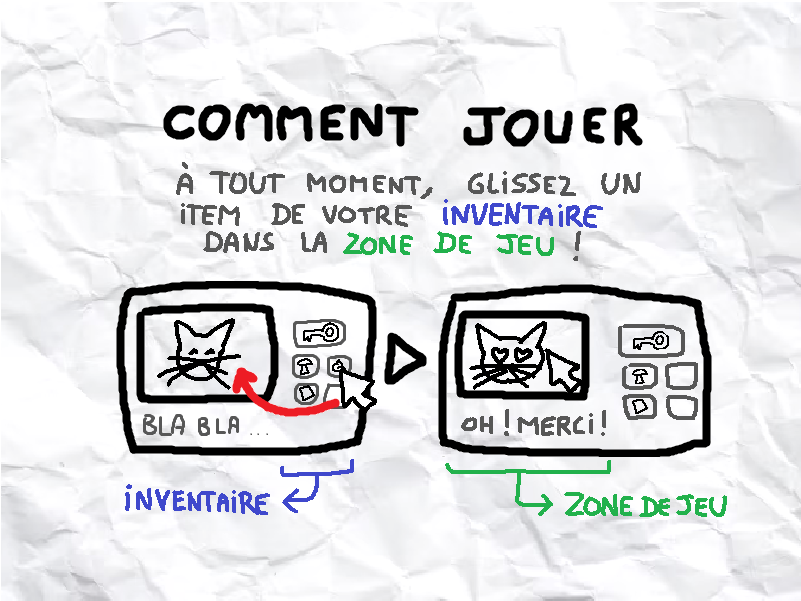 COMMENT JOUER
À TOUT MOMENT, GLISSEZ UN
ITEM DE VOTRE INVENTAIRE
DANS LA ZONE DE JEU !
BLA BLA ...
OH ! MERCI !
INVENTAIRE
ZONE DE JEU